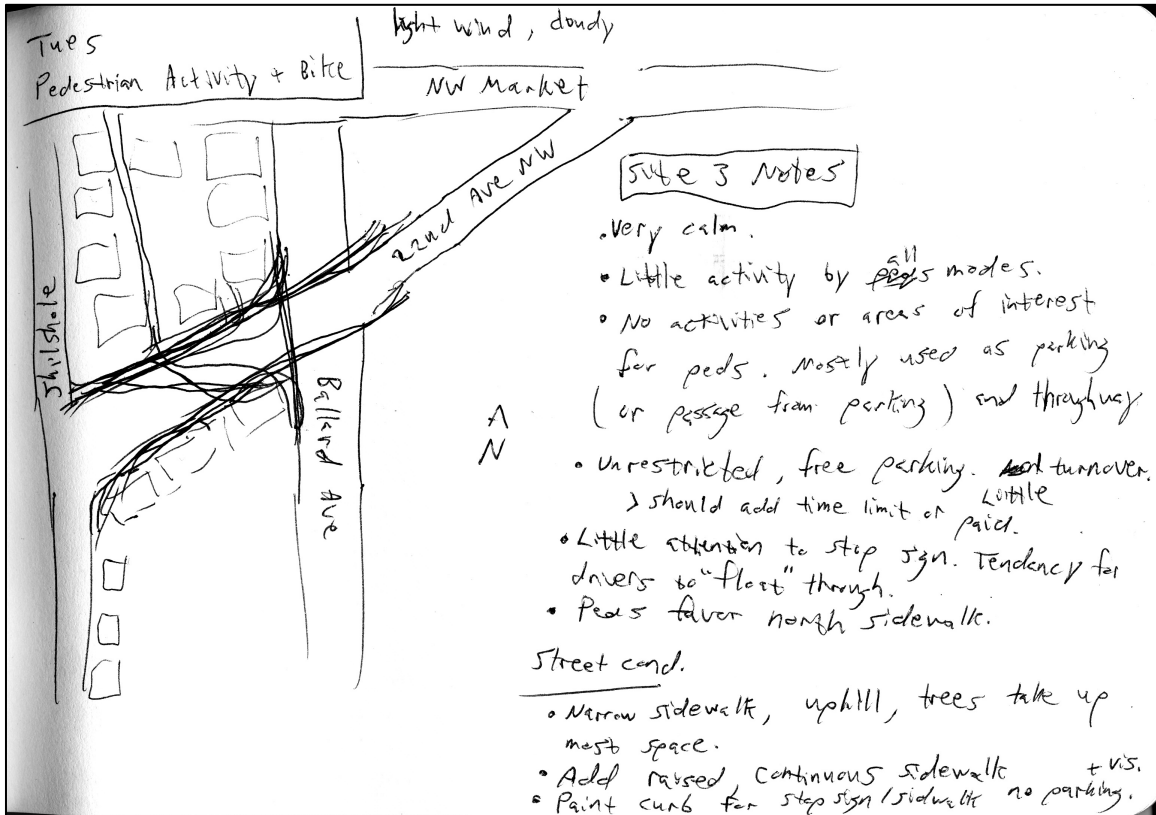 Tues
Pedestrian Activity + Bike
light wind, cloudy
NW Market
22nd Ave NW
Shilshole
Ballard Ave
N
Site 3 Notes
• Very calm.
• Little activity by all modes.
• No activities or areas of interest
for peds. Mostly used as parking
(or passage from parking) and throughway
• Unrestricted, free parking. Little turnover.
> should add time limit or paid.
• Little attention to stop sign. Tendency for
drivers to "float" through.
• Peds favor north sidewalk.
Street cond.
• Narrow sidewalk, uphill, trees take up
most space.
• Add raised, continuous sidewalk + vis.
• Paint curb for stop sign/sidwalk no parking.